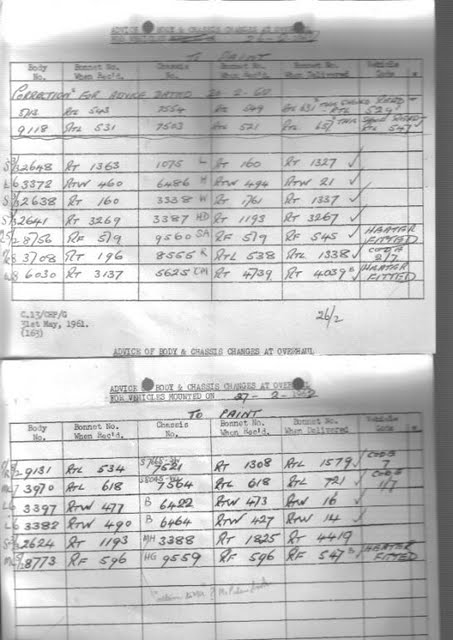 ADVICE OF BODY & CHASSIS CHANGES AT OVERHAUL
TO PAINT
Body No. Bonnet No. When Rec'd. Chassis No. Bonnet No. When Rec'd. Bonnet No. When Delivered Vehicle Code
CORRECTION FOR ADVICE DATED 20-2-60
RTL 543 7554 RTL 549 RTL 631 THIS SHOULD READ RTL 529
9118 RTL 531 7503 RTL 521 RTL 657 THIS SHOULD READ RTL 547
2648 RT 1363 1075 L RT 160 RT 1327 ✓
3372 RTW 460 6486 H RTW 494 RTW 21 ✓
2638 RT 160 3338 W RT 1761 RT 1337 ✓
2641 RT 3269 3387 HD RT 1193 RT 3267 ✓
8756 RF 519 9560 SA RF 519 RF 545 ✓ HEATER FITTED
3708 RT 196 8555 K RTL 538 RTL 1338 ✓ CODE 2/7
6030 RT 3137 5625 CM RT 4739 RT 4039 ✓ HEATER FITTED
C.13/CHP/G
31st May, 1961.
(163)
26/2
ADVICE OF BODY & CHASSIS CHANGES AT OVERHAUL
ADVICE OF BODY & CHASSIS CHANGES AT OVERHAUL
FOR VEHICLES MOUNTED ON 27-2-1962
TO PAINT
Body No. Bonnet No. When Rec'd. Chassis No. Bonnet No. When Rec'd. Bonnet No. When Delivered Vehicle Code
9131 RTL 534 7521 RT 1308 RTL 1579 ✓ CODE 7
3970 RTL 618 7564 RTL 618 RTL 721 ✓ CODE 1/7
3397 RTW 477 B 6422 RTW 473 RTW 16 ✓
3382 RTW 490 B 6464 RTW 427 RTW 14 ✓
2624 RT 1193 MH 3388 RT 1825 RT 4419
8773 RF 596 HG 9559 RF 596 RF 547 ✓ HEATER FITTED